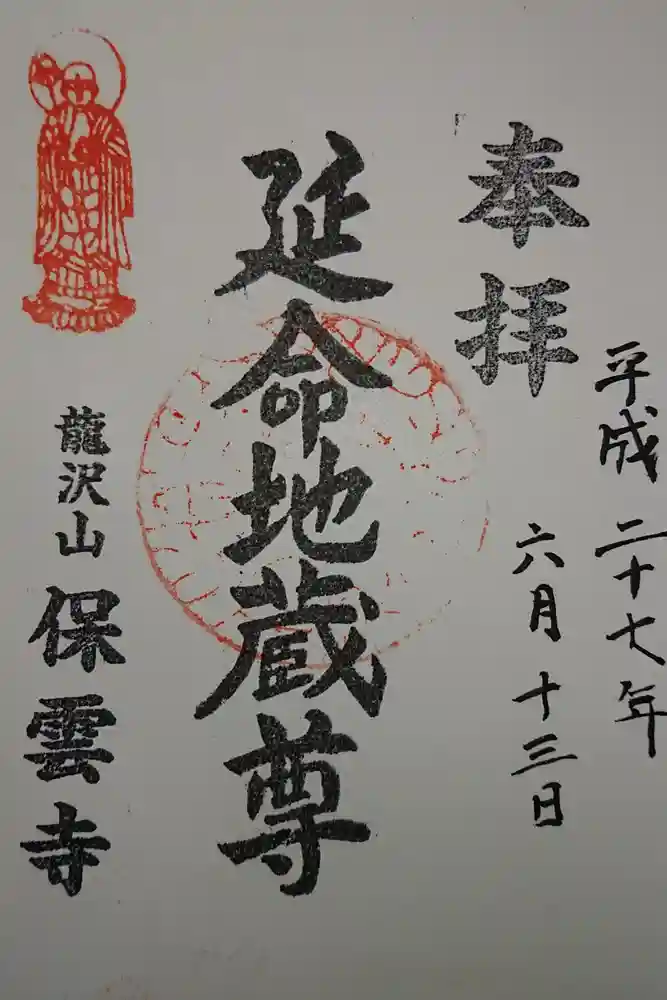 平成二十七年
六月十三日
奉拝
延命地蔵尊
龍沢山 保雲寺